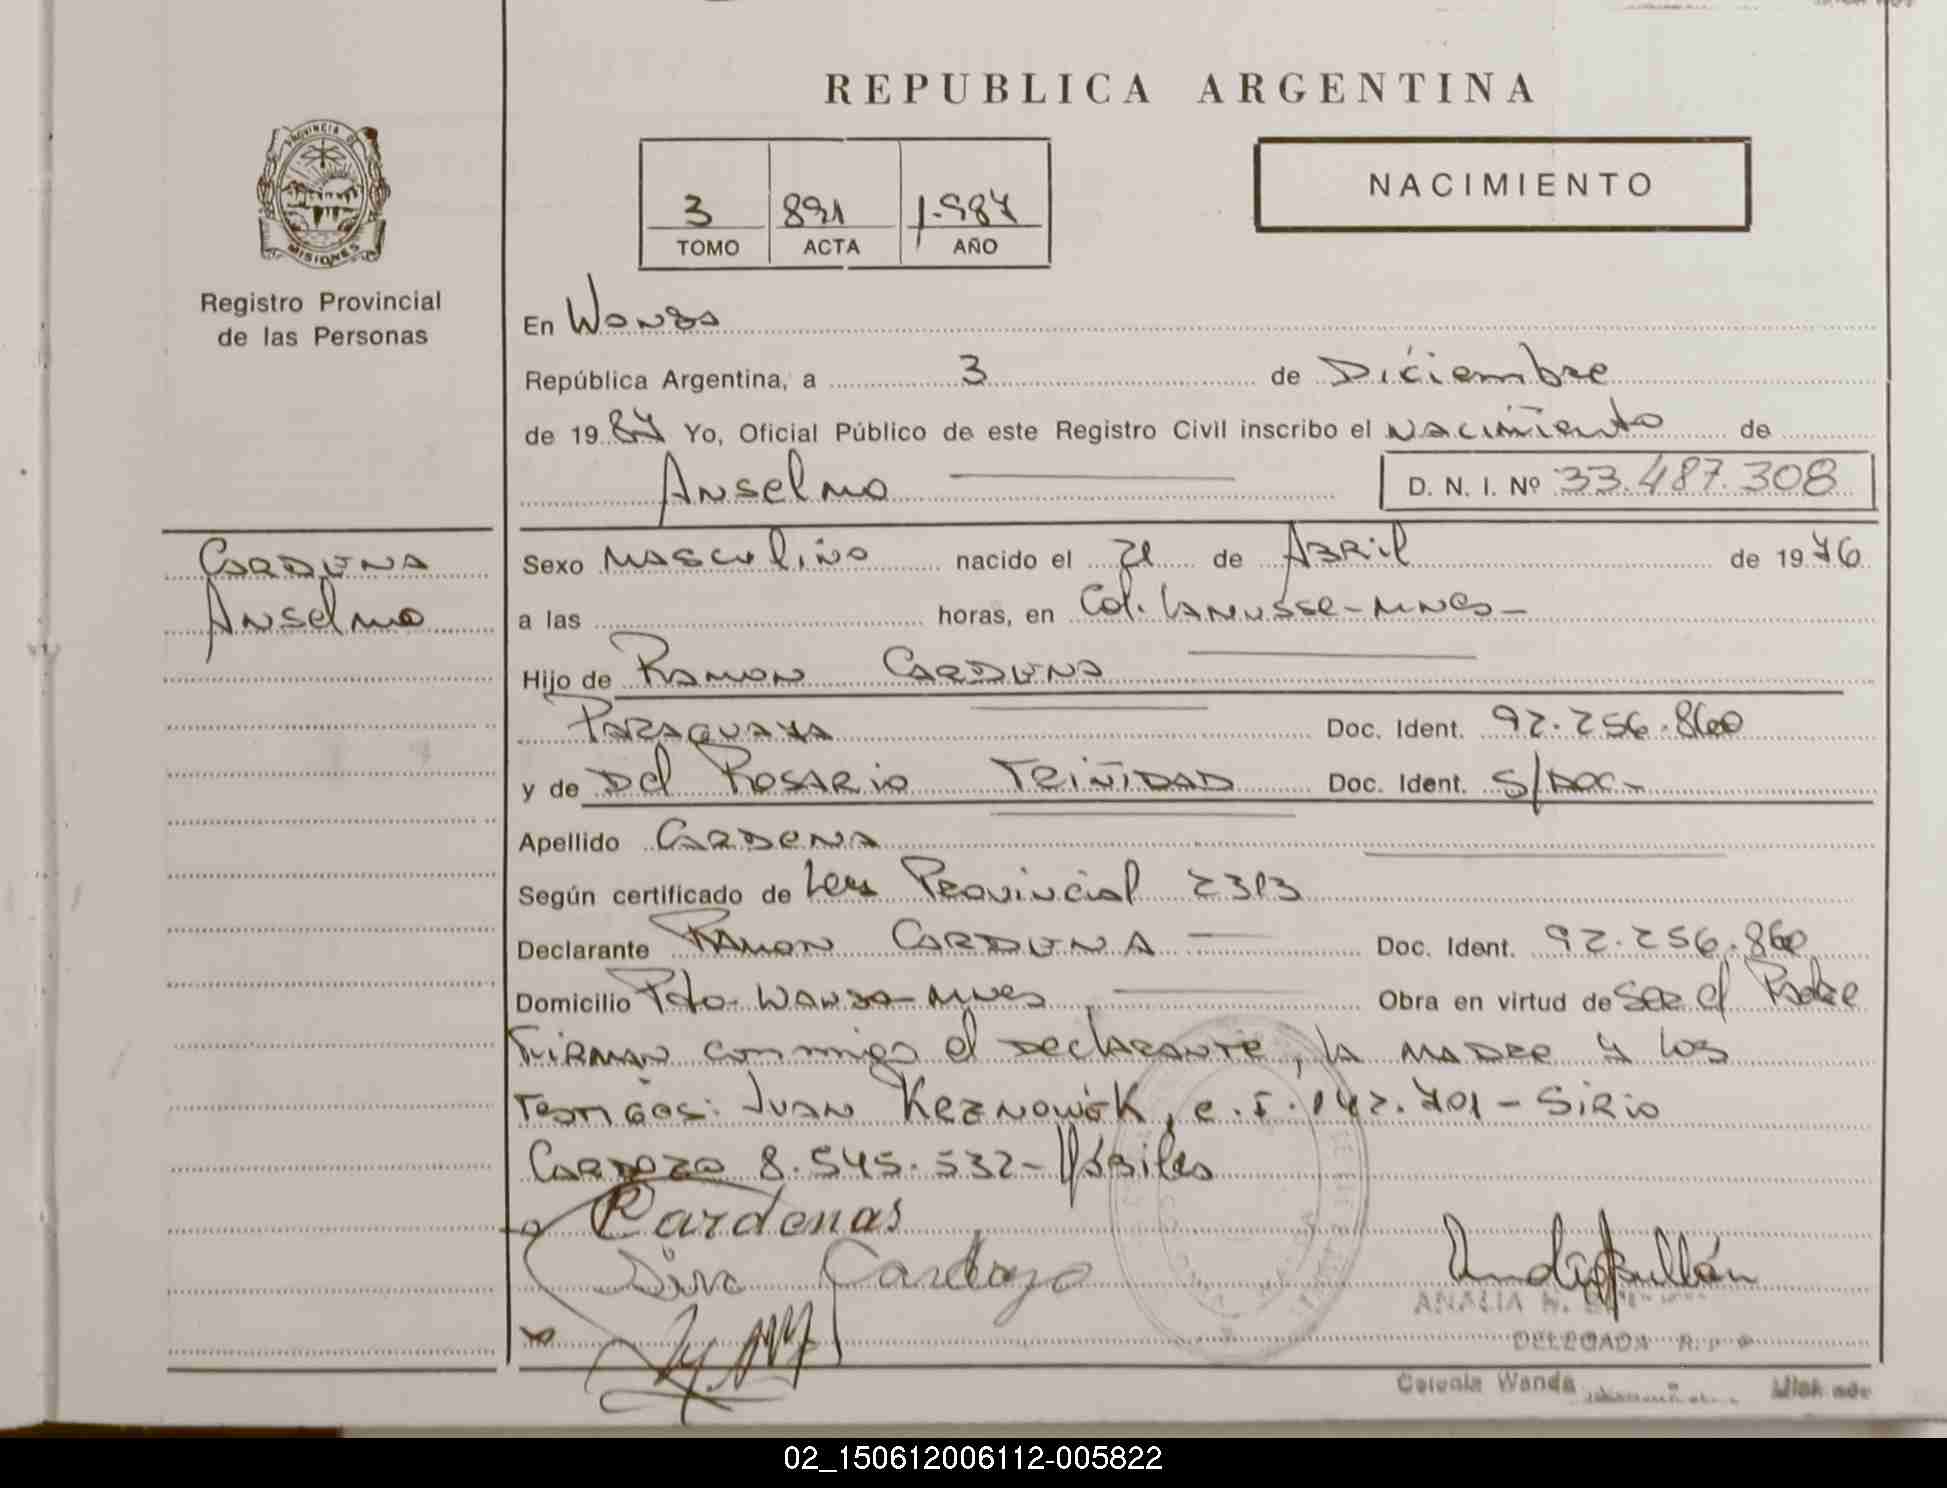 REPUBLICA ARGENTINA
PROVINCIA DE
MISIONES
Registro Provincial
de las Personas
3 891 1.987
TOMO ACTA AÑO
NACIMIENTO
En Wanda
República Argentina, a 3 de Diciembre
de 1987 Yo, Oficial Público de este Registro Civil inscribo el Nacimiento de
Anselmo
D. N. I. Nº 33.487.308
CARDENA
Anselmo
Sexo Masculino nacido el 21 de Abril de 1976
a las horas, en Col. Lanusse-Mnes-
Hijo de Ramon CARDENA
Paraguaya Doc. Ident. 92.256.860
y de Del Rosario TRINIDAD Doc. Ident. S/Doc-
Apellido CARDENA
Según certificado de Ley Provincial 2313
Declarante Ramon CARDENA Doc. Ident. 92.256.860
Domicilio Pto. Wanda-Mnes Obra en virtud de Ser el Padre
Firman conmigo el Declarante, la madre y los
Testigos: Juan Keznowik, c.I. 142.701- Sirio
Cardozo 8.545.532- Hábiles
Cardenas
Cardozo
ANALIA N.
DELEGADA R. P.
Colonia Wanda Misiones
02_150612006112-005822